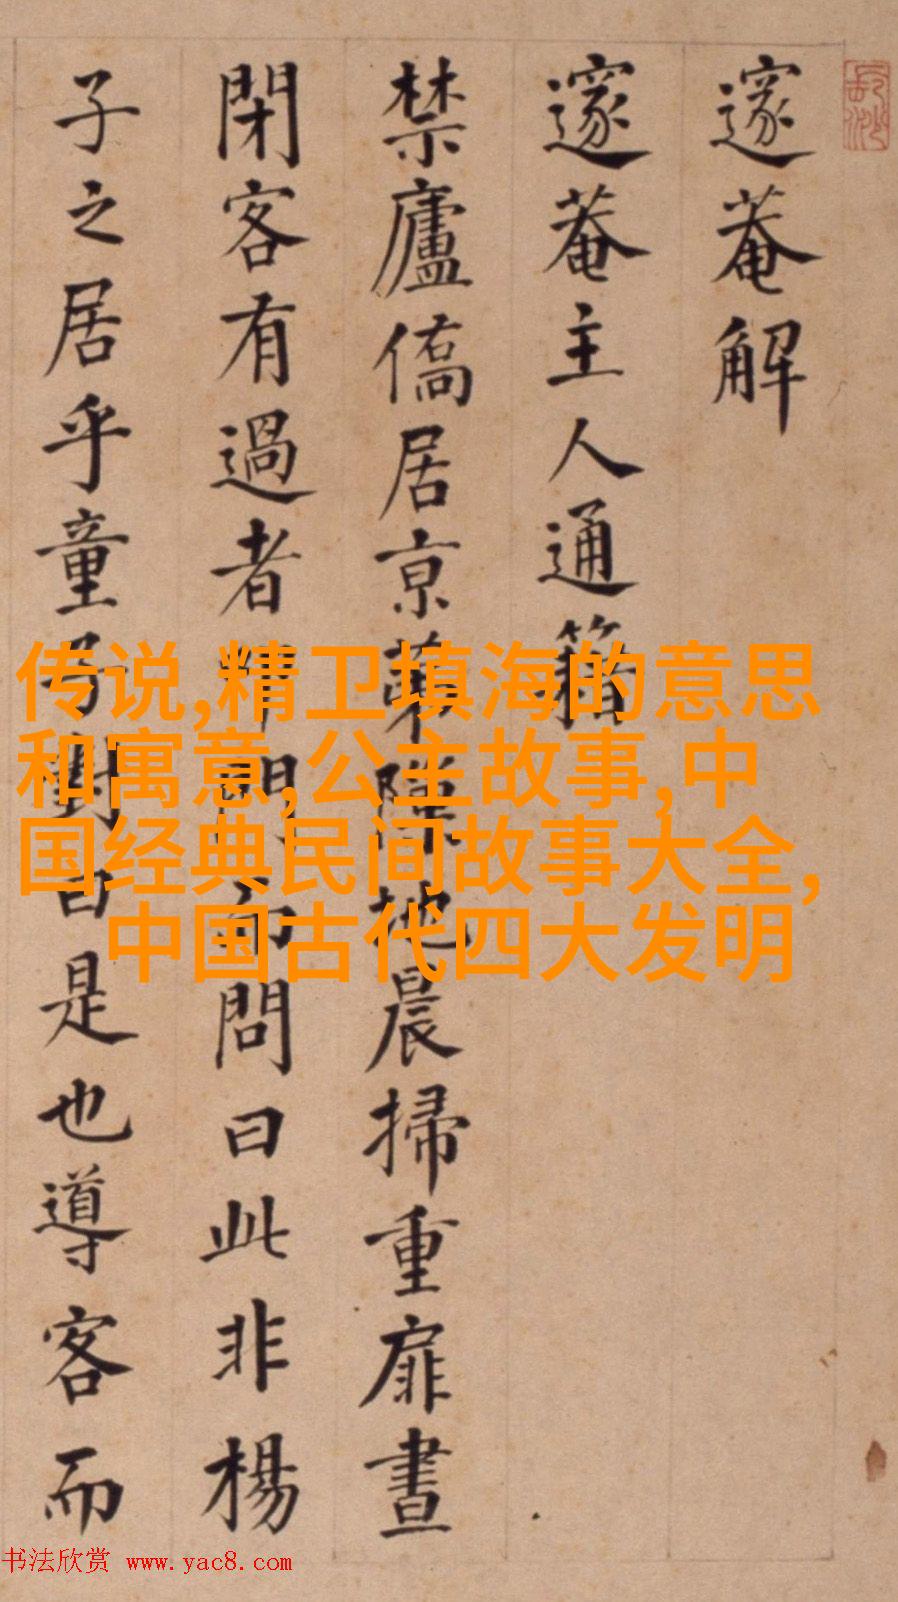 邃菴解
邃菴主人通籍
禁廬僑居京地晨掃重扉晝
閉客有過者門而問曰此非楊
子之居乎童子對曰是也導客而
传说,精卫填海的意思
和寓意,公主故事,中
国经典民间故事大全,
中国古代四大发明
书法欣赏 www.yac8.com